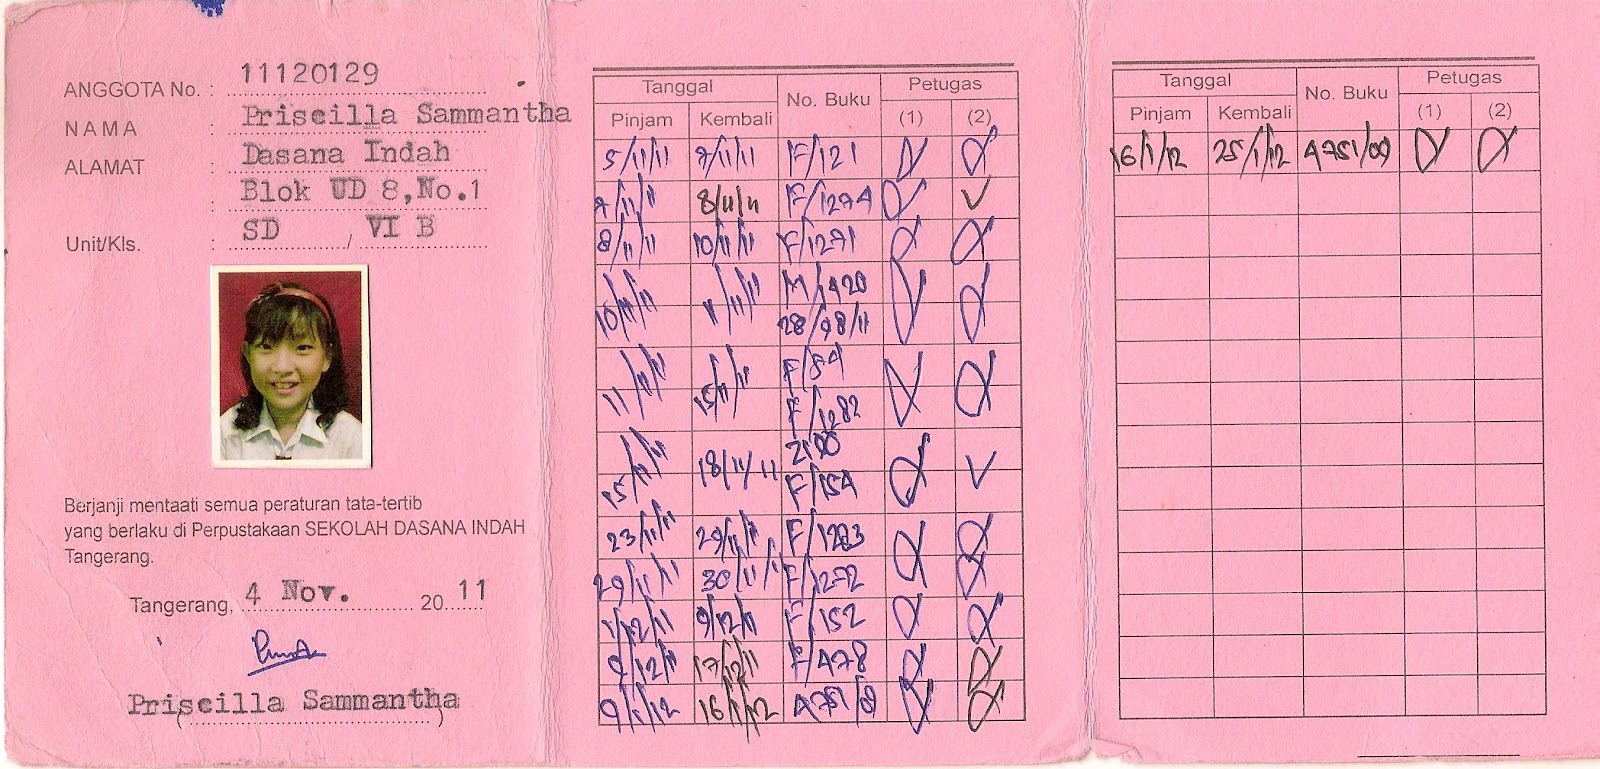 ANGGOTA No. : 11120129
NAMA : Priscilla Sammantha
ALAMAT : Dasana Indah
: Blok UD 8,No.1
Unit/Kls. : SD / VI B
Berjanji mentaati semua peraturan tata-tertib
yang berlaku di Perpustakaan SEKOLAH DASANA INDAH
Tangerang.
Tangerang, 4 Nov. 20 11
Priscilla Sammantha
Tanggal No. Buku Petugas
Pinjam Kembali (1) (2)
5/11/11 7/11/11 F/121
7/11/11 8/11/11 F/1274
8/11/11 10/11/11 F/1271
10/11/11 11/11/11 M/420
28/98/11
11/11/11 15/11/11 F/54
F/1282
15/11/11 18/11/11 2190
F/154
23/11/11 29/11/11 F/1283
29/11/11 30/11/11 F/1272
1/12/11 9/12/11 F/152
9/12/11 17/12/11 F/478
9/1/12 16/1/12 4751/09
Tanggal No. Buku Petugas
Pinjam Kembali (1) (2)
16/1/12 25/1/12 4751/09